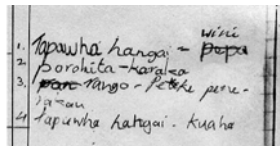 wini
1. Tapawha hangai -
2. porohita - karaka
3. rango - Peteke pene-
rakau
4 Tapawha hangai - kuaha